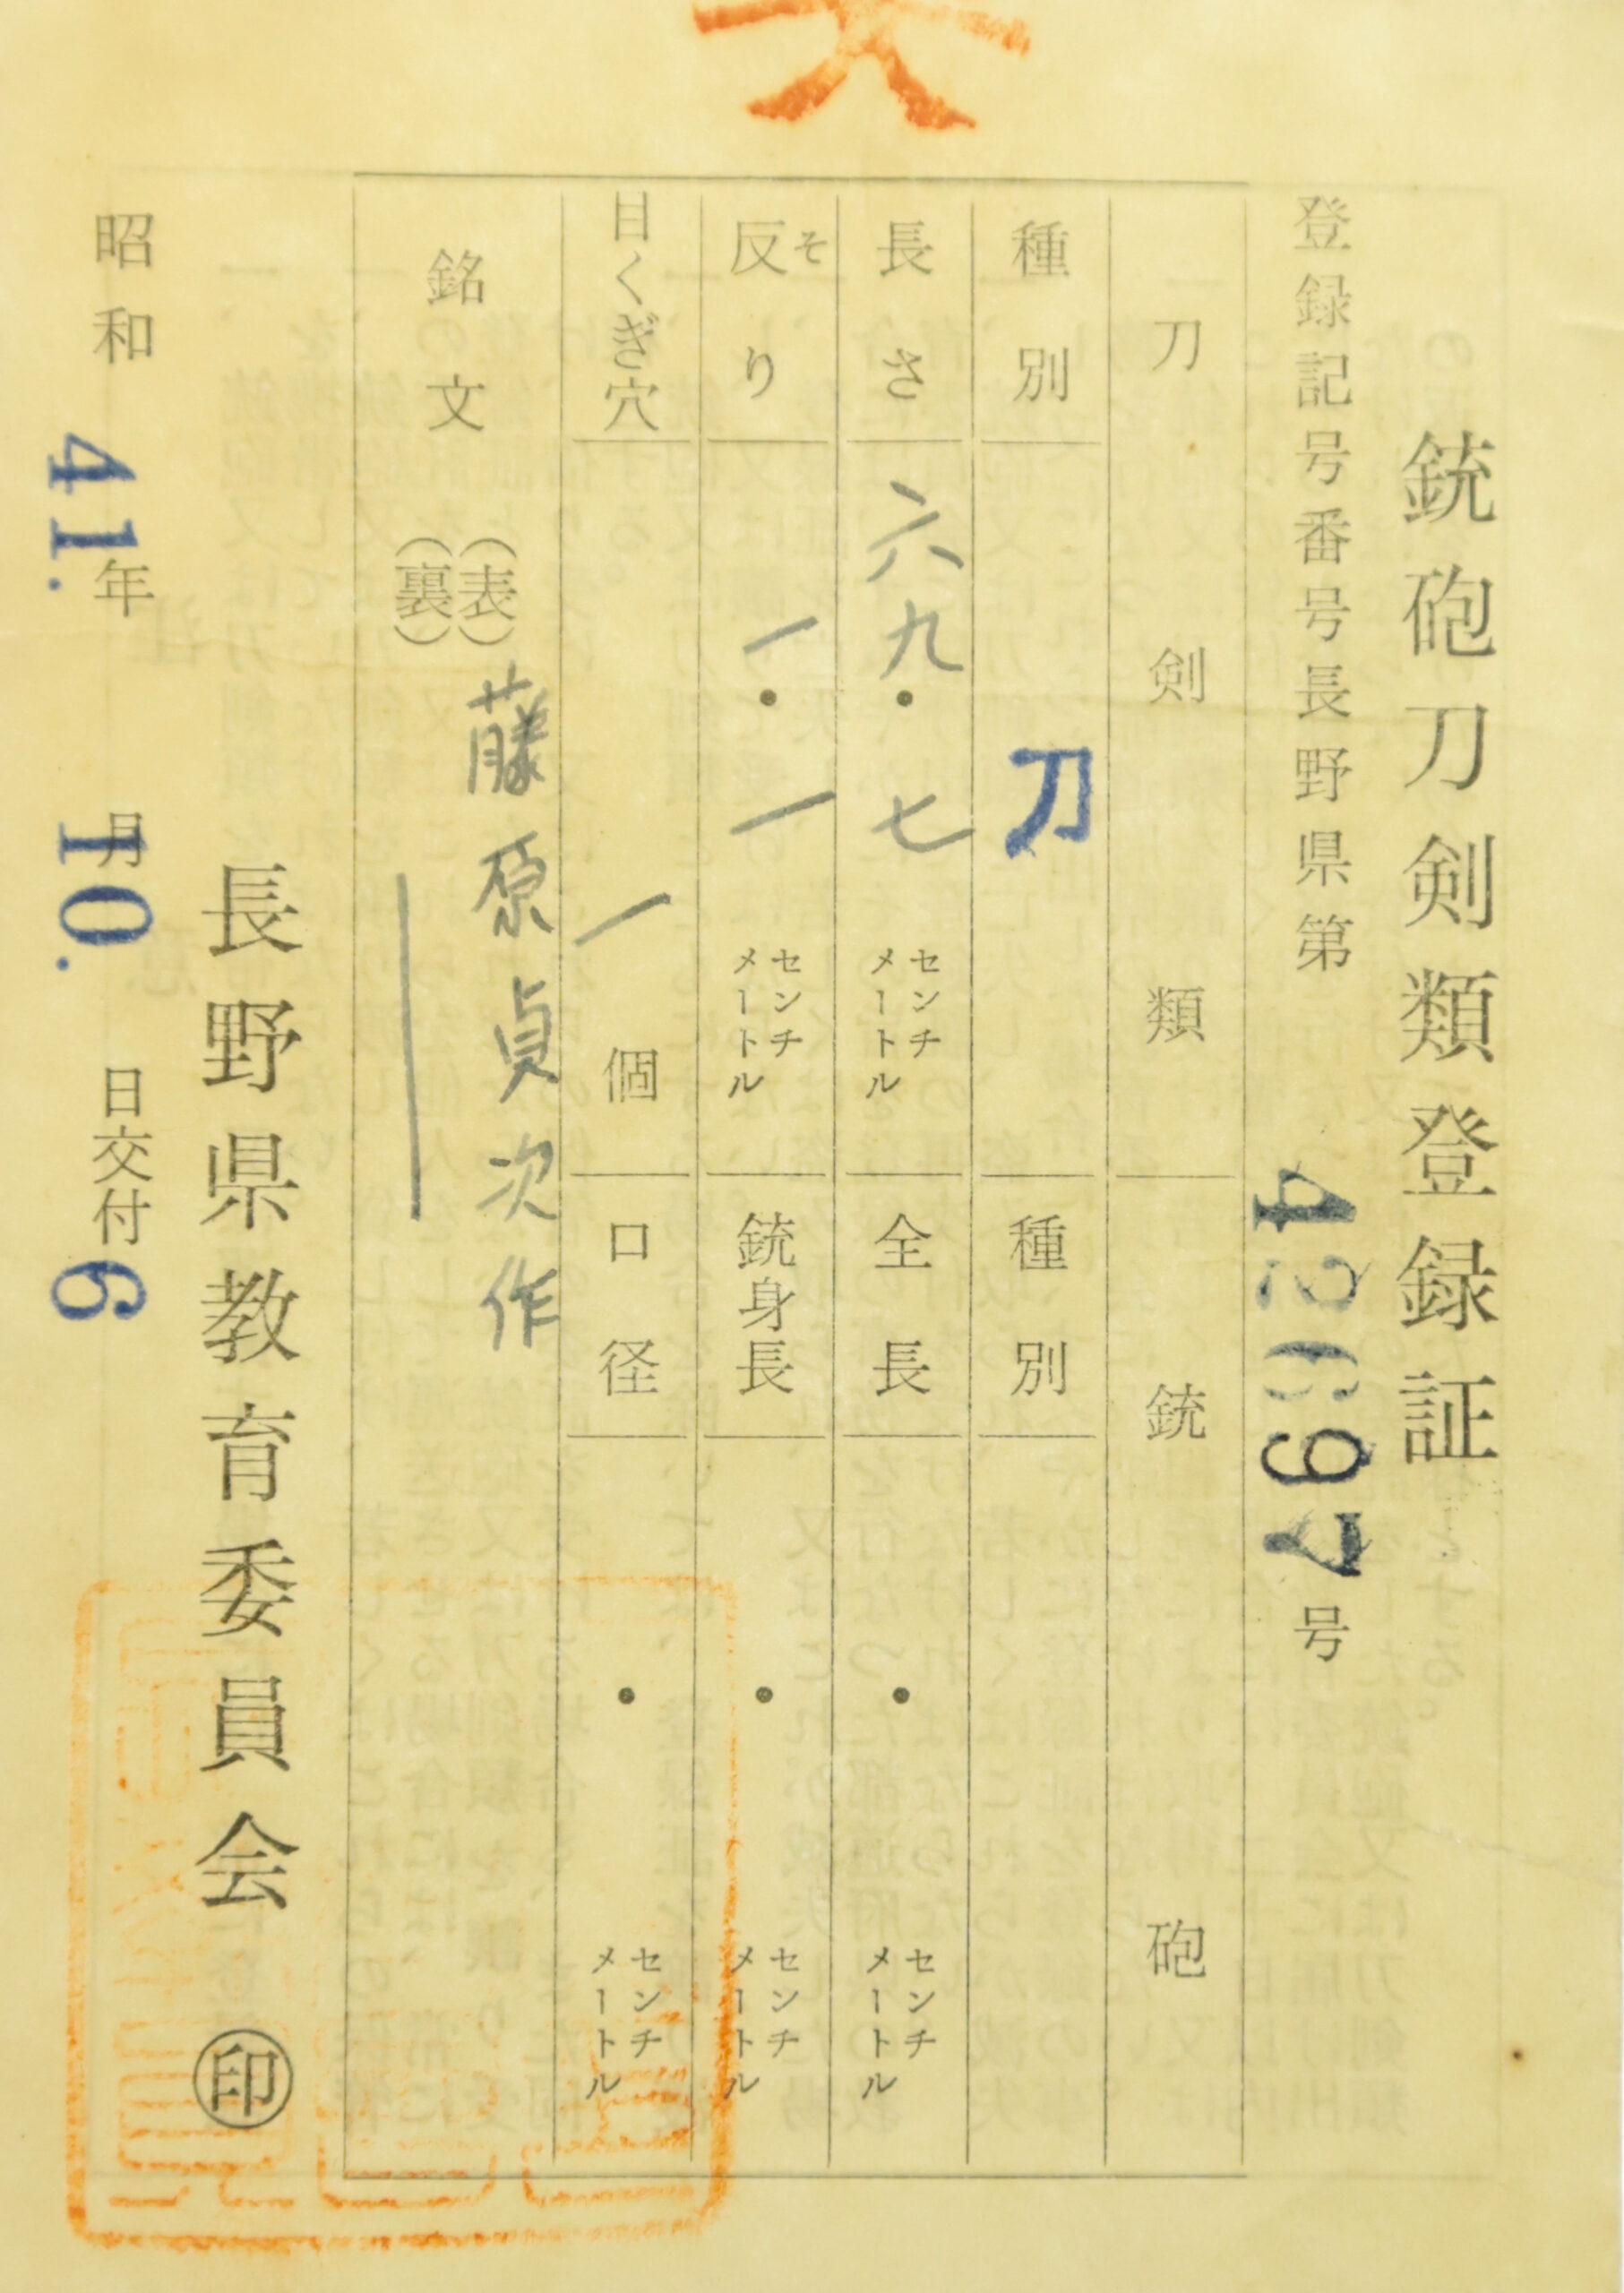 銃砲刀剣類登録証
登録記号番号長野県第 42697 号
刀剣類 銃砲
種別 刀 種別
長さ 六九・七 センチメートル 全長 ・ センチメートル
反り そ 一・一 センチメートル 銃身長 ・ センチメートル
目くぎ穴 一 個 口径 ・ センチメートル
銘文 (表) 藤原貞次作
(裏)
長野県教育委員会 ㊞
昭和 41. 年 10. 月 6 日交付